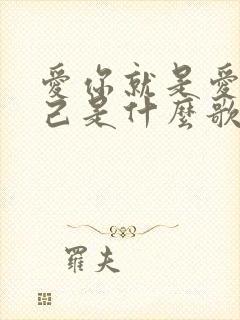 愛你就是愛
己是什麼歌
羅夫